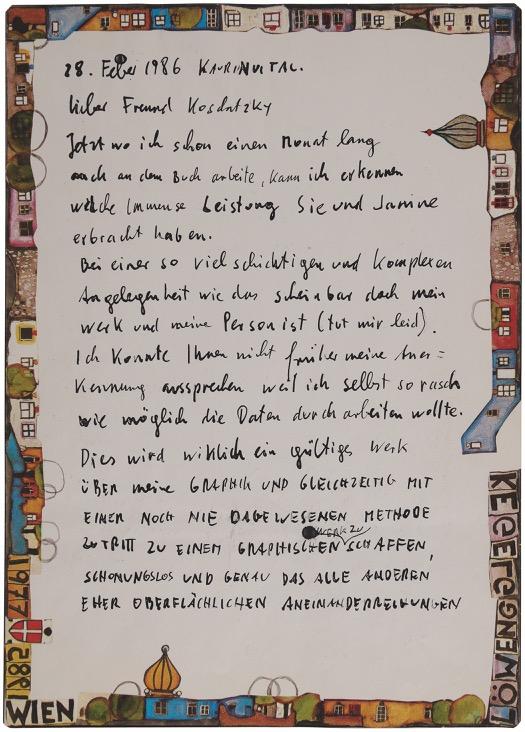 28. Feber 1986 KAURINUITAL.
Lieber Freund Kosdatzky
Jetzt wo ich schon einen Monat lang
auch an dem Buch arbeite, kann ich erkennen
welche Immense Leistung Sie und Janine
erbracht haben.
Bei einer so vielschichtigen und komplexen
Angelegenheit wie das scheinbar doch mein
werk und meine Person ist (tut mir leid).
Ich konnte Ihnen nicht früher meine Aner=
kennung aussprechen weil ich selbst so rasch
wie möglich die Daten durch arbeiten wollte.
Dies wird wirklich ein gültiges Werk
ÜBER meine GRAPHIK UND GLEICHZEITIG MIT
EINER NOCH NIE DAGEWESENEN METHODE
WERK ZU
ZUTRITT ZU EINEM GRAPHISCHEN SCHAFFEN,
SCHONUNGSLOS UND GENAU DAS ALLE ANDEREN
EHER OBERFLÄCHLICHEN ANEINANDERREIHUNGEN
1977
1982
WIEN